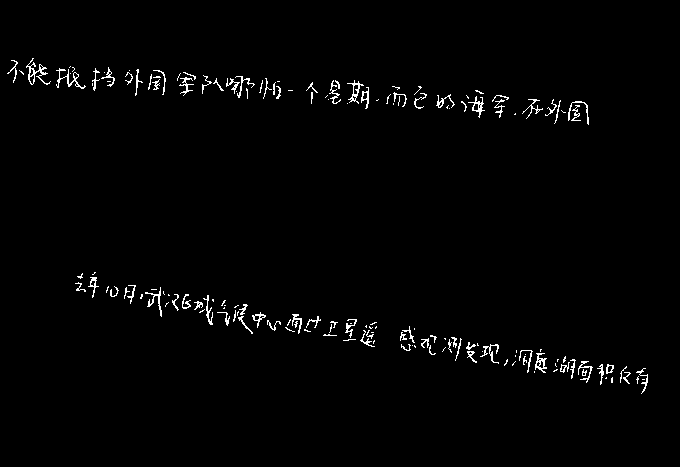 不能抵挡外国军队哪怕一个星期.而它的海军.在外国
去年10月,武汉区域气候中心通过卫星遥 感观测发现,洞庭湖面积仅有